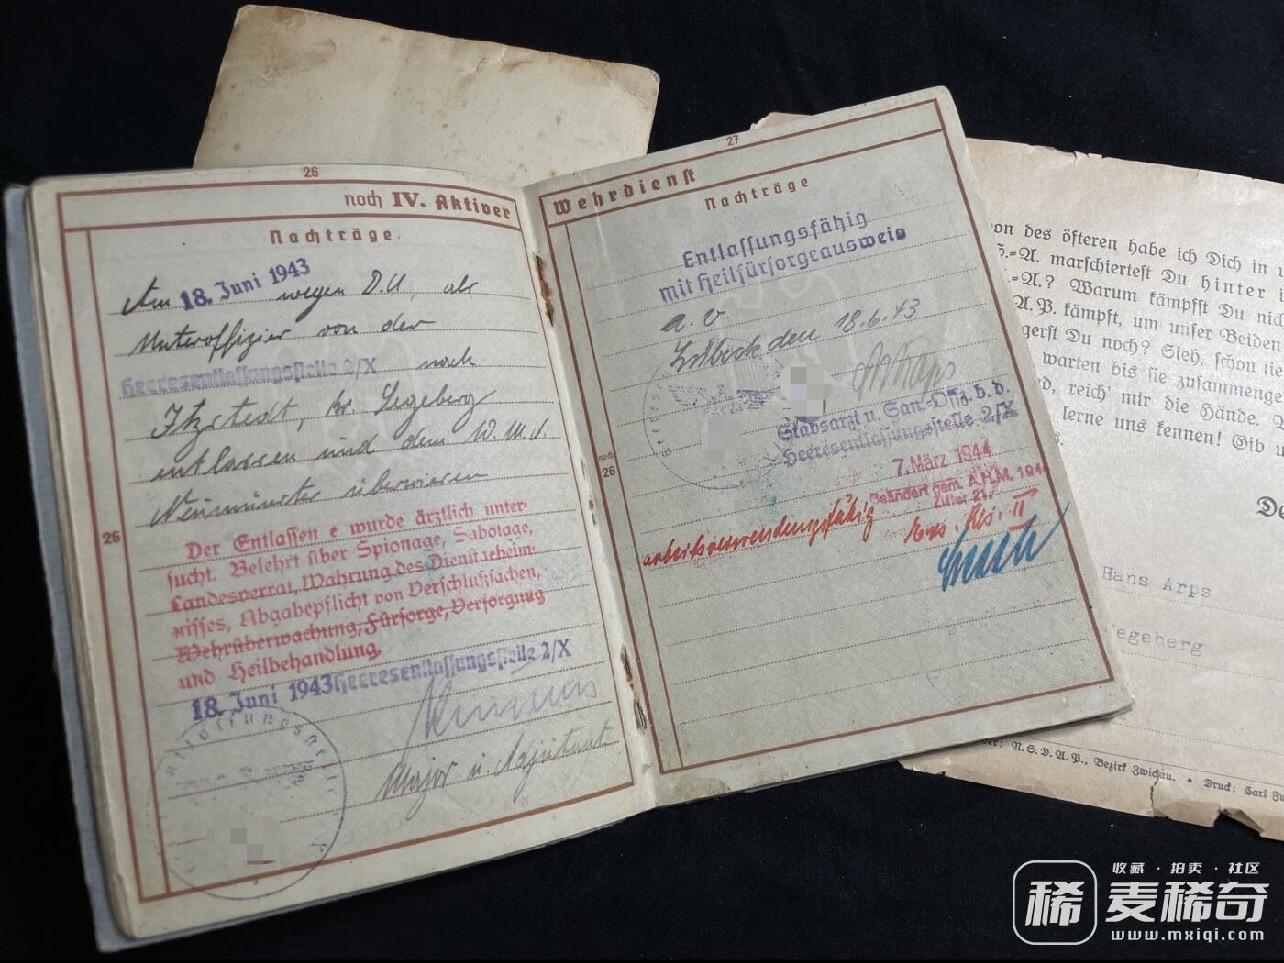 26
noch IV. Aktiver
Nachträge.
Am 18. Juni 1943 wegen D.U., als
Unteroffizier von der
Heeresentlassungsstelle 2/X nach
Itzstedt, Kr. Segeberg
entlassen und dem W.M.A.
Neumünster überwiesen
26
Der Entlassen e wurde ärztlich unter-
sucht. Belehrt über Spionage, Sabotage,
Landesverrat, Wahrung des Dienstgeheim-
nisses, Abgabepflicht von Verschlußsachen,
Wehrüberwachung, Fürsorge, Versorgung
und Heilbehandlung.
18. Juni 1943 Heeresentlassungsstelle 2/X
Major u. Adjutant
27
Wehrdienst
Nachträge
Entlassungsfähig
mit Heilfürsorgeausweis
a. v.
den 18.6.43
Stabsarzt u. San.-Offz. b. d.
Heeresentlassungsstelle 2/X
noch
26
7. März 1944
Geändert gem. A.H.M. 1944
Ziffer 21.
arbeitsverwendungsfähig Ers. Res. II
on des öfteren habe ich Dich in
.-A. marschiertest Du hinter
.-A.? Warum kämpfst Du nich
A.P. kämpft, um unser Beiden
gerst Du noch? Sieh, schon lie
warten bis sie zusammenge
d, reich' mir die Hände.
lerne uns kennen! Gib u
De
Hans Arps
egeberg
N.S.D.A.P., Bezirk Zwickau. • Druck: Carl
稀
收藏 · 拍卖 · 社区
麦稀奇
www.mxiqi.com